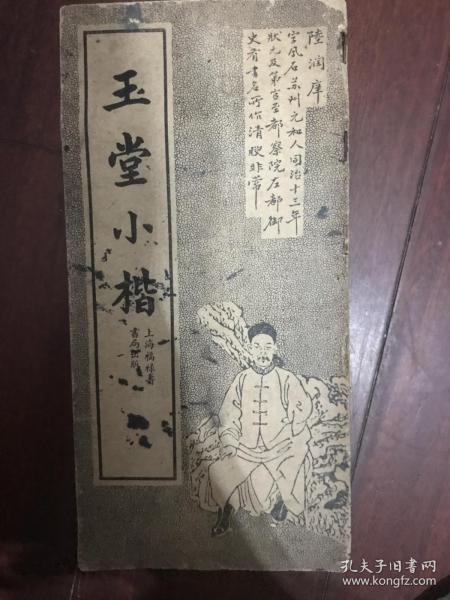 陸潤庠
字鳳石苏州元和人同治十三年
狀元及第官至都察院左都御
史有書名所作清腴非常
玉堂小楷
上海福祿壽
書局出版
孔夫子旧书网
www.kongfz.com